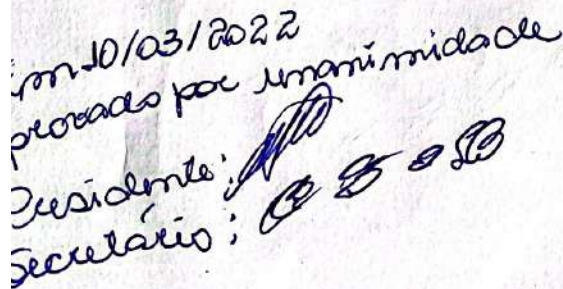 em 10/03/2022
provado por unanimidade
Presidente:
Secretário: